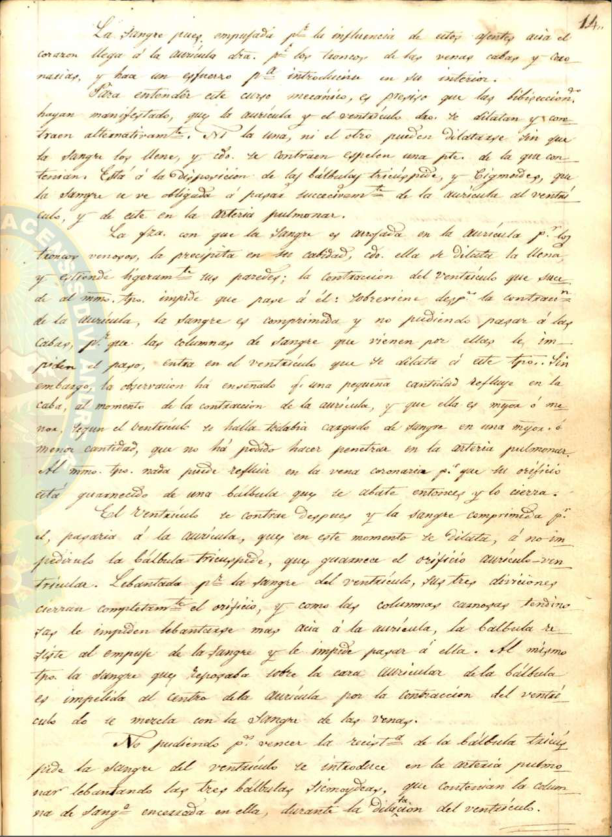 14.
La sangre pues, empujada pr. la influencia de estos agentes acia el
corazon llega á la aurícula dra. pr. los troncos de las venas cabas y coro-
narias, y hace un esfuerzo pa. introducirse en su interior.
Para entender este curso mecánico, es presiso que las bibisecciones
hayan manifestado, que la aurícula y el ventrículo dro. se dilatan y con-
traen alternativamte. Ni la una, ni el otro pueden dilatarse sin que
la sangre los llene, y cdo. se contraen espelen una pte. de la que con-
tenian. Esta á la disposicion de las bálbulas tricúspide, y sigmoides, que
la sangre se ve obligada á pasar succesivamte. de la aurícula al ventrí-
culo, y de este en la arteria pulmonar.
La fza. con que la sangre es arrojada en la aurícula pr. los
troncos venosos, la precipita en su cabidad, cdo. ella se dilata la llena,
y estiende ligeramte. sus paredes; la contraccion del ventrículo que suce-
de al mmo. tpo. impide que pase á él: sobreviene desps. la contraccn.
de la aurícula, la sangre es comprimida y no pudiendo pasar á las
cabas, pr. que las columnas de sangre que vienen por ellas le im-
piden el paso, entra en el ventrículo que se dilata á este tpo. Sin
embargo, la observacion há enseñado q. una pequeña cantidad refluye en la
caba, al momento de la contraccion de la aurícula, y que ella es mayor ó me-
nor, segun el ventrículo se halla todabia cargado de sangre en una mayor ó
menor cantidad, que no há podido hacer penetrar en la arteria pulmonar.
Al mmo. tpo. nada puede refluir en la vena coronaria pr. que su orificio
está guarnecido de una bálbula que se abate entonces y lo cierra.
El ventrículo se contrae despues y la sangre comprimida pr.
el, pasaria á la aurícula, que en este momento se dilata, á no im-
pedirselo la bálbula tricuspide, que guarnece el orificio aurículo-ven-
tricular. Lebantada pr. la sangre del ventrículo, sus tres diviciones
cierran completamte. el orificio, y como las columnas carnosas tendino-
sas le impiden lebantarse mas acia á la aurícula, la bálbula re-
siste al empuje de la sangre y le impide pasar á ella. Al mismo
tpo. la sangre que reposaba sobre la cara auricular de la bálbula
es impelida al centro de la aurícula por la contraccion del ventrí-
culo do se mezcla con la sangre de las venas.
No pudiendo ps. vencer la resista. de la bálbula tricús-
pide la sangre del ventrículo se introduce en la arteria pulmo-
nar lebantando las tres bálbulas sicmoydeas, que contienen la colum-
na de sange. encerrada en ella, durante la dilatacion del ventrículo.